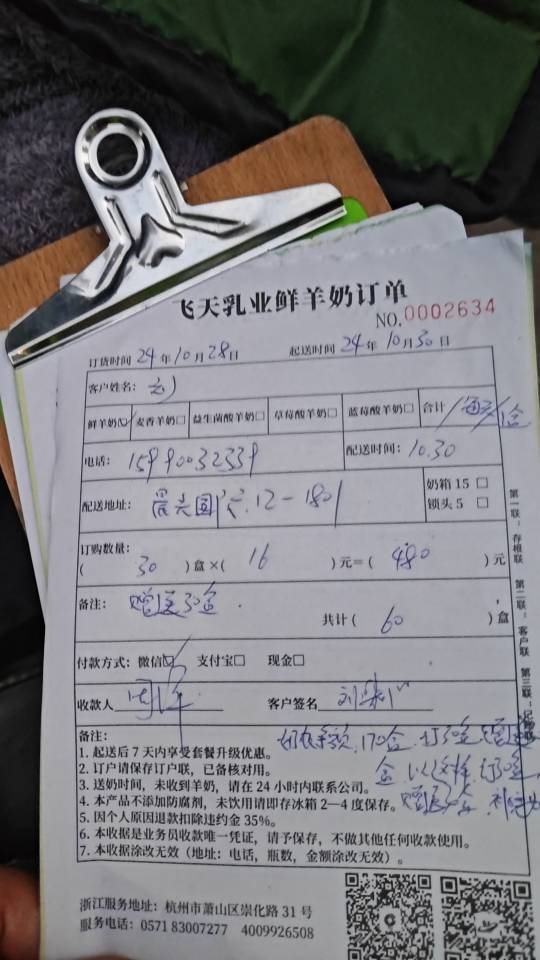 飞天乳业鲜羊奶订单
NO.0002634
订货时间 24年10月28日 起送时间 24年10月30日
客户姓名：
鲜羊奶☑ 麦香羊奶□ 益生菌酸羊奶□ 草莓酸羊奶□ 蓝莓酸羊奶□ 合计
电话： 配送时间：10.30
配送地址： 12-1801
奶箱 15 □
锁头 5 □
订购数量：
( 30 )盒×( 16 )元=( 480 )元
备注：赠送30盒.
共计( 60 )盒
付款方式：微信☑ 支付宝□ 现金□
收款人 客户签名
备注：
1. 起送后 7 天内享受套餐升级优惠。
2. 订户请保存订户联，已备核对用。
3. 送奶时间，未收到羊奶，请在 24 小时内联系公司。
4. 本产品不添加防腐剂，未饮用请即存冰箱 2—4 度保存。
5. 因个人原因退款扣除违约金 35%。
6. 本收据是业务员收款唯一凭证，请予保存，不做其他任何收款使用。
7. 本收据涂改无效（地址：电话，瓶数，金额涂改无效）。
浙江服务地址：杭州市萧山区崇化路 31 号
服务电话：0571 83007277 4009926508
第一联：存根联 第二联：客户联 第三联：记账联